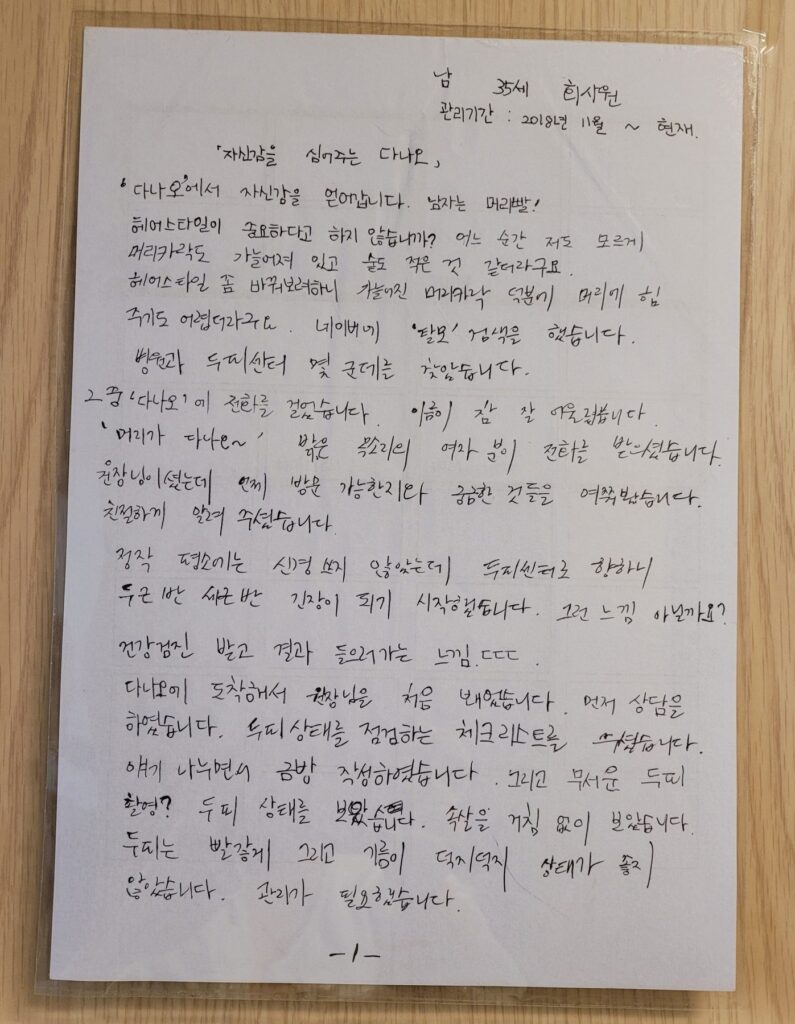 남 35세 회사원
관리기간 : 2018년 11월 ~ 현재.
「자신감을 심어주는 다나오」
'다나오'에서 자신감을 얻어갑니다. 남자는 머리빨!
헤어스타일이 중요하다고 하지 않습니까? 어느 순간 저도 모르게
머리카락도 가늘어져 있고 숱도 적은 것 같더라구요.
헤어스타일 좀 바꿔보려하니 가늘어진 머리카락 덕분에 머리에 힘
주기도 어렵더라구요. 네이버에 '탈모' 검색을 했습니다.
병원과 두피센터 몇 군데를 찾았습니다.
그 중 '다나오'에 전화를 걸었습니다. 이름이 참 잘 어울립니다.
'머리가 다나오~' 밝은 목소리의 여자 분이 전화를 받으셨습니다.
원장님이셨는데 언제 방문 가능한지와 궁금한 것들을 여쭤봤습니다.
친절하게 알려 주셨습니다.
정작 평소에는 신경쓰지 않았는데 두피센터로 향하니
두근반 세근반 긴장이 되기 시작했습니다. 그런 느낌 아실까요?
건강검진 받고 결과 들으러가는 느낌.ㄷㄷㄷ.
다나오에 도착해서 원장님을 처음 뵈었습니다. 먼저 상담을
하였습니다. 두피상태를 점검하는 체크리스트를 주셨습니다.
얘기 나누면서 금방 작성하였습니다. 그리고 무서운 두피
촬영? 두피 상태를 보았습니다. 속살을 거침 없이 보았습니다.
두피는 빨갛게 그리고 기름이 덕지덕지 상태가 좋지
않았습니다. 관리가 필요했습니다.
-1-